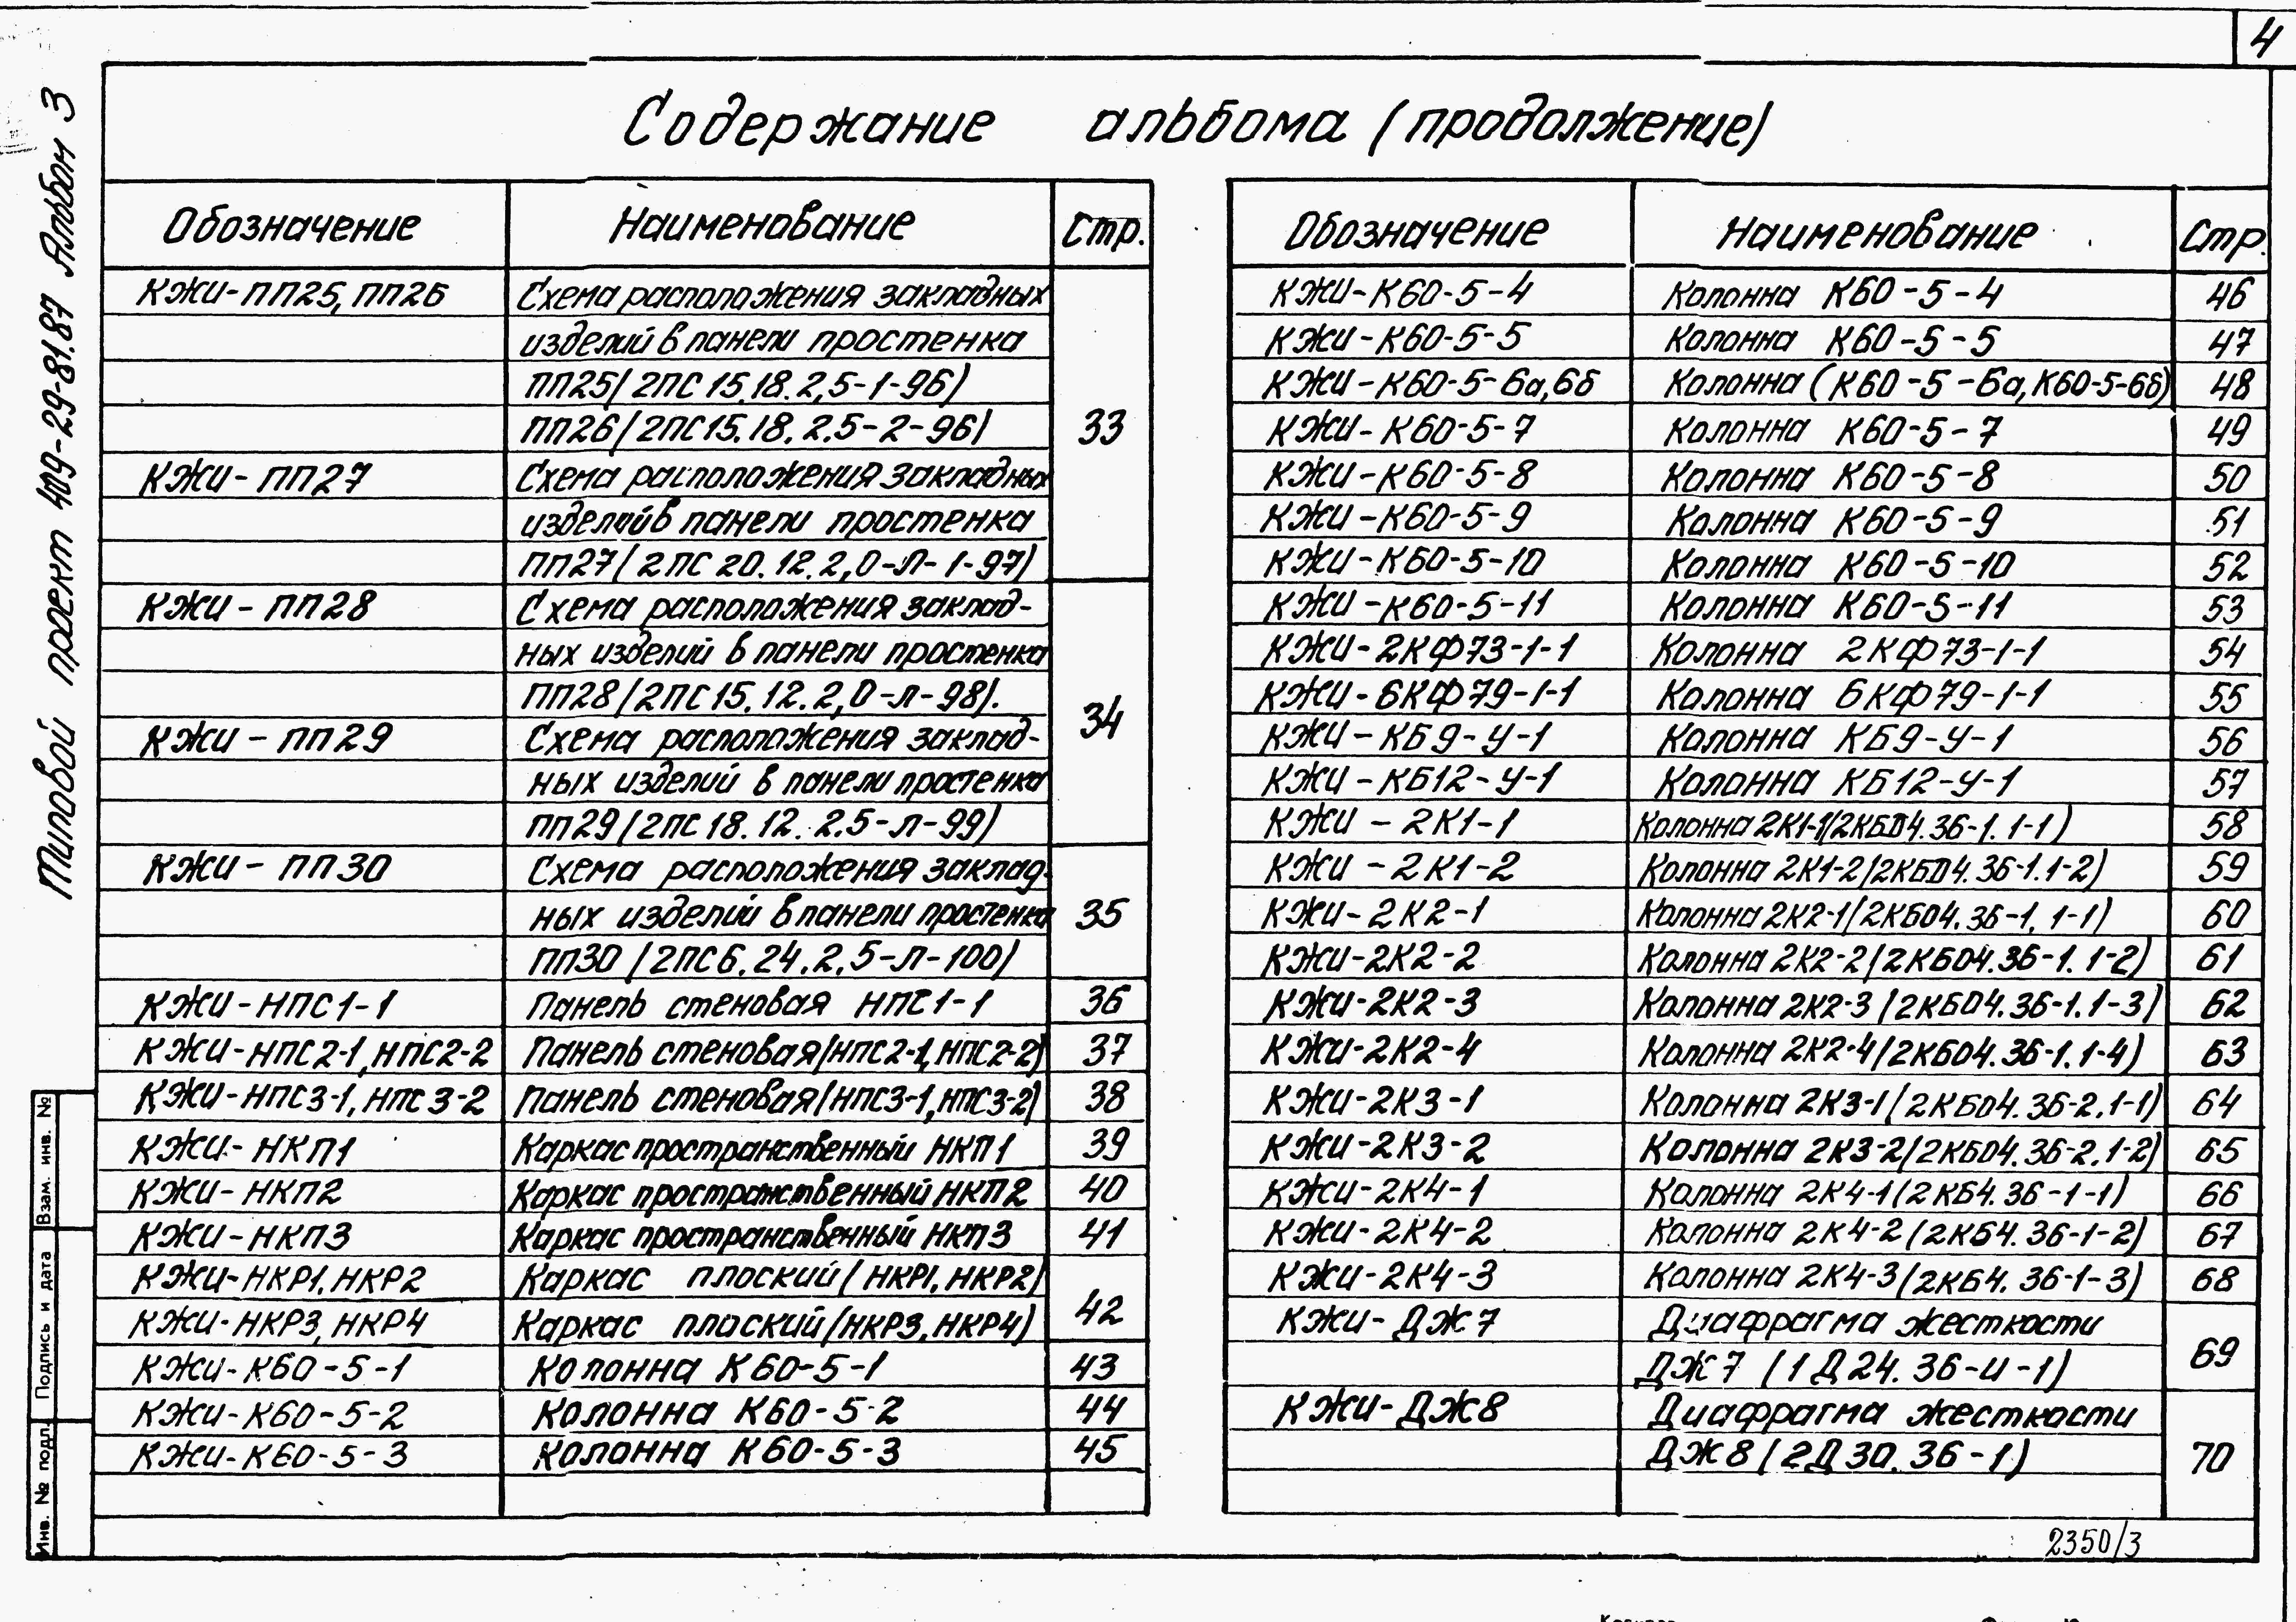 4
Типовой проект 409-29-81.87 Альбом 3
Содержание альбома (продолжение)
Обозначение Наименование Стр.
КЖИ-ПП25, ПП26 Схема расположения закладных
изделий в панели простенка
ПП25(2ПС 15.18.2,5-1-96)
ПП26(2ПС15.18.2.5-2-96) 33
КЖИ-ПП27 Схема расположения закладных
изделий в панели простенка
ПП27(2ПС 20.12.2,0-Л-1-97)
КЖИ-ПП28 Схема расположения заклад-
ных изделий в панели простенка
ПП28(2ПС15.12.2,0-л-98). 34
КЖИ-ПП29 Схема расположения заклад-
ных изделий в панели простенка
ПП29(2ПС 18.12.2.5-л-99)
КЖИ-ПП30 Схема расположения заклад-
ных изделий в панели простенка 35
ПП30 (2ПС6.24.2.5-л-100)
КЖИ-НПС1-1 Панель стеновая НПС1-1 36
КЖИ-НПС2-1, НПС2-2 Панель стеновая(НПС2-1, НПС2-2) 37
КЖИ-НПС3-1, НПС3-2 Панель стеновая(НПС3-1, НПС3-2) 38
КЖИ-НКП1 Каркас пространственный НКП1 39
КЖИ-НКП2 Каркас пространственный НКП2 40
КЖИ-НКП3 Каркас пространственный НКП3 41
КЖИ-НКР1, НКР2 Каркас плоский (НКР1, НКР2) 42
КЖИ-НКР3, НКР4 Каркас плоский (НКР3, НКР4)
КЖИ-К60-5-1 Колонна К60-5-1 43
КЖИ-К60-5-2 Колонна К60-5-2 44
КЖИ-К60-5-3 Колонна К60-5-3 45
Обозначение Наименование Стр.
КЖИ-К60-5-4 Колонна К60-5-4 46
КЖИ-К60-5-5 Колонна К60-5-5 47
КЖИ-К60-5-6а,6б Колонна (К60-5-6а, К60-5-6б) 48
КЖИ-К60-5-7 Колонна К60-5-7 49
КЖИ-К60-5-8 Колонна К60-5-8 50
КЖИ-К60-5-9 Колонна К60-5-9 51
КЖИ-К60-5-10 Колонна К60-5-10 52
КЖИ-К60-5-11 Колонна К60-5-11 53
КЖИ-2КФ73-1-1 Колонна 2КФ73-1-1 54
КЖИ-6КФ79-1-1 Колонна 6КФ79-1-1 55
КЖИ-КБ9-У-1 Колонна КБ9-У-1 56
КЖИ-КБ12-У-1 Колонна КБ12-У-1 57
КЖИ-2К1-1 Колонна 2К1-1(2КБ04.36-1.1-1) 58
КЖИ-2К1-2 Колонна 2К1-2(2КБ04.36-1.1-2) 59
КЖИ-2К2-1 Колонна 2К2-1(2КБ04.36-1.1-1) 60
КЖИ-2К2-2 Колонна 2К2-2(2КБ04.36-1.1-2) 61
КЖИ-2К2-3 Колонна 2К2-3(2КБ04.36-1.1-3) 62
КЖИ-2К2-4 Колонна 2К2-4(2КБ04.36-1.1-4) 63
КЖИ-2К3-1 Колонна 2К3-1(2КБ04.36-2.1-1) 64
КЖИ-2К3-2 Колонна 2К3-2(2КБ04.36-2.1-2) 65
КЖИ-2К4-1 Колонна 2К4-1(2КБ4.36-1-1) 66
КЖИ-2К4-2 Колонна 2К4-2(2КБ4.36-1-2) 67
КЖИ-2К4-3 Колонна 2К4-3(2КБ4.36-1-3) 68
КЖИ-ДЖ7 Диафрагма жесткости
ДЖ7 (1Д24.36-и-1) 69
КЖИ-ДЖ8 Диафрагма жесткости
ДЖ8(2Д30.36-1) 70
Взам. инв. №
Подпись и дата
Инв. № подл.
2350/3